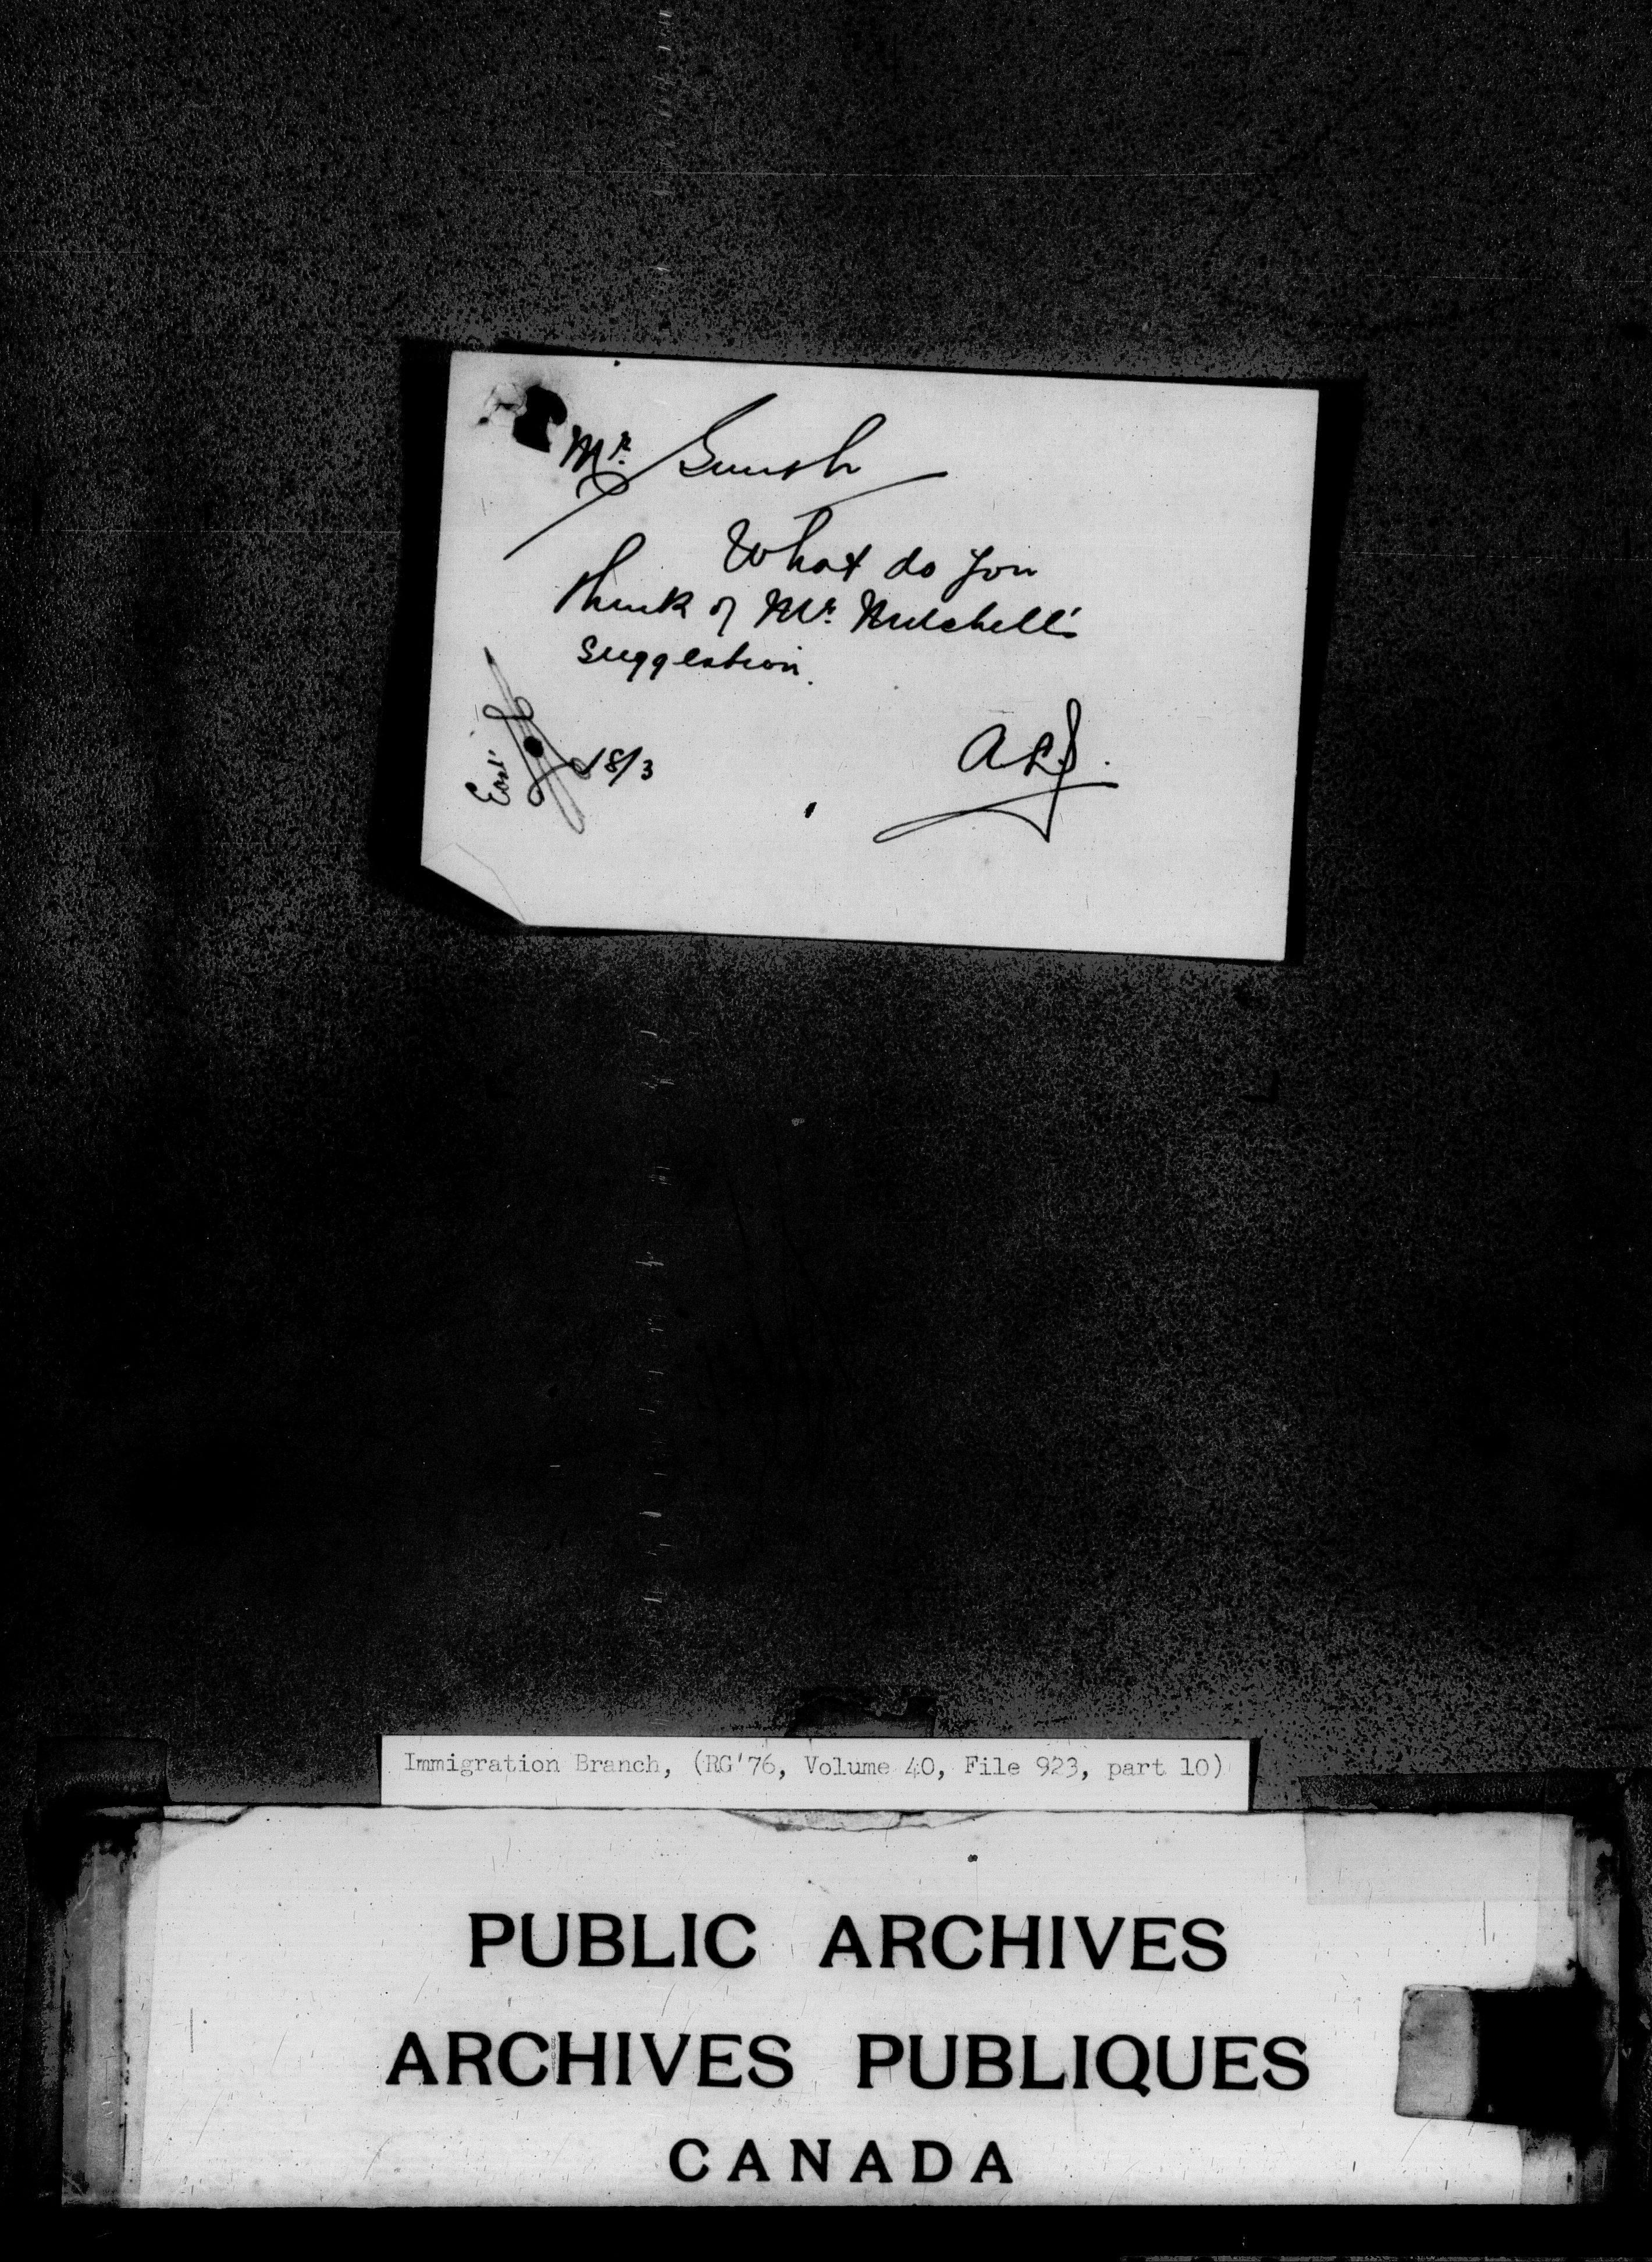 Mr. Smith
What do you
think of Mr. Mitchell's
suggestion.
18/3
Immigration Branch, (RG 76, Volume 40, File 923, part 10)
PUBLIC ARCHIVES
ARCHIVES PUBLIQUES
CANADA